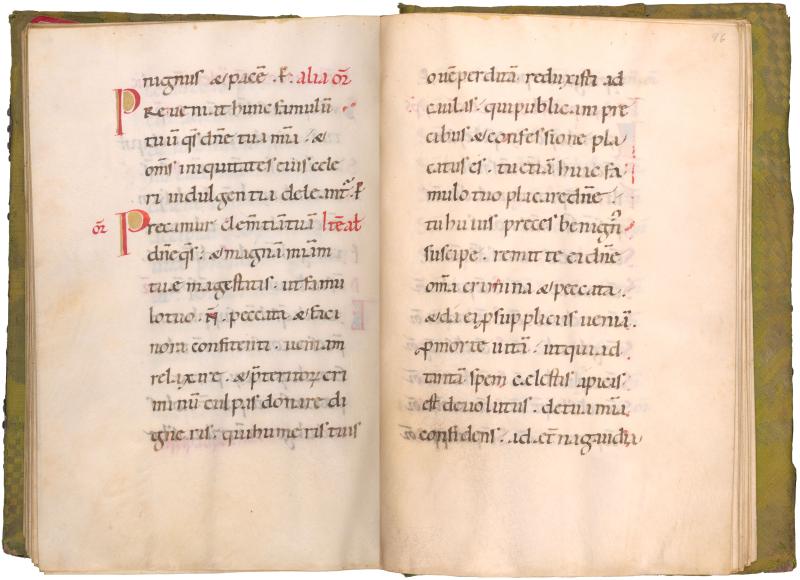 nignus & pacē . P̄ alia or̄
Preveniat hunc famulū
tuū qs̄ dn̄e tua mīa . &
om̄s iniquitates eius cele
ri indulgentia deleant̄ . P̄
or̄ Precamur clem̄tiā tuā It̄ē al
dn̄e qs̄ . & magnā miām
tuæ magestatis . ut famu
lo tuo . N̄ . peccata & faci
nora confitenti . veniam
relaxare . & p̄teritoꝝ cri
minū culpas donare di
gneris . qui humeris tuis
96
ovē perditā reduxisti ad
caulas . qui publicani pre
cibus & confessione pla
catus es . tu etiā huic fa
mulo tuo placare dn̄e .
tu huius preces benign̄
suscipe . remitte ei dn̄e
om̄a crimina & peccata .
& da ei p suppliciis veniā .
p morte vitā . ut qui ad
tantā spem cælestis apicis
est devolutus . de tua mīa
confidens . ad et̄na gaudia